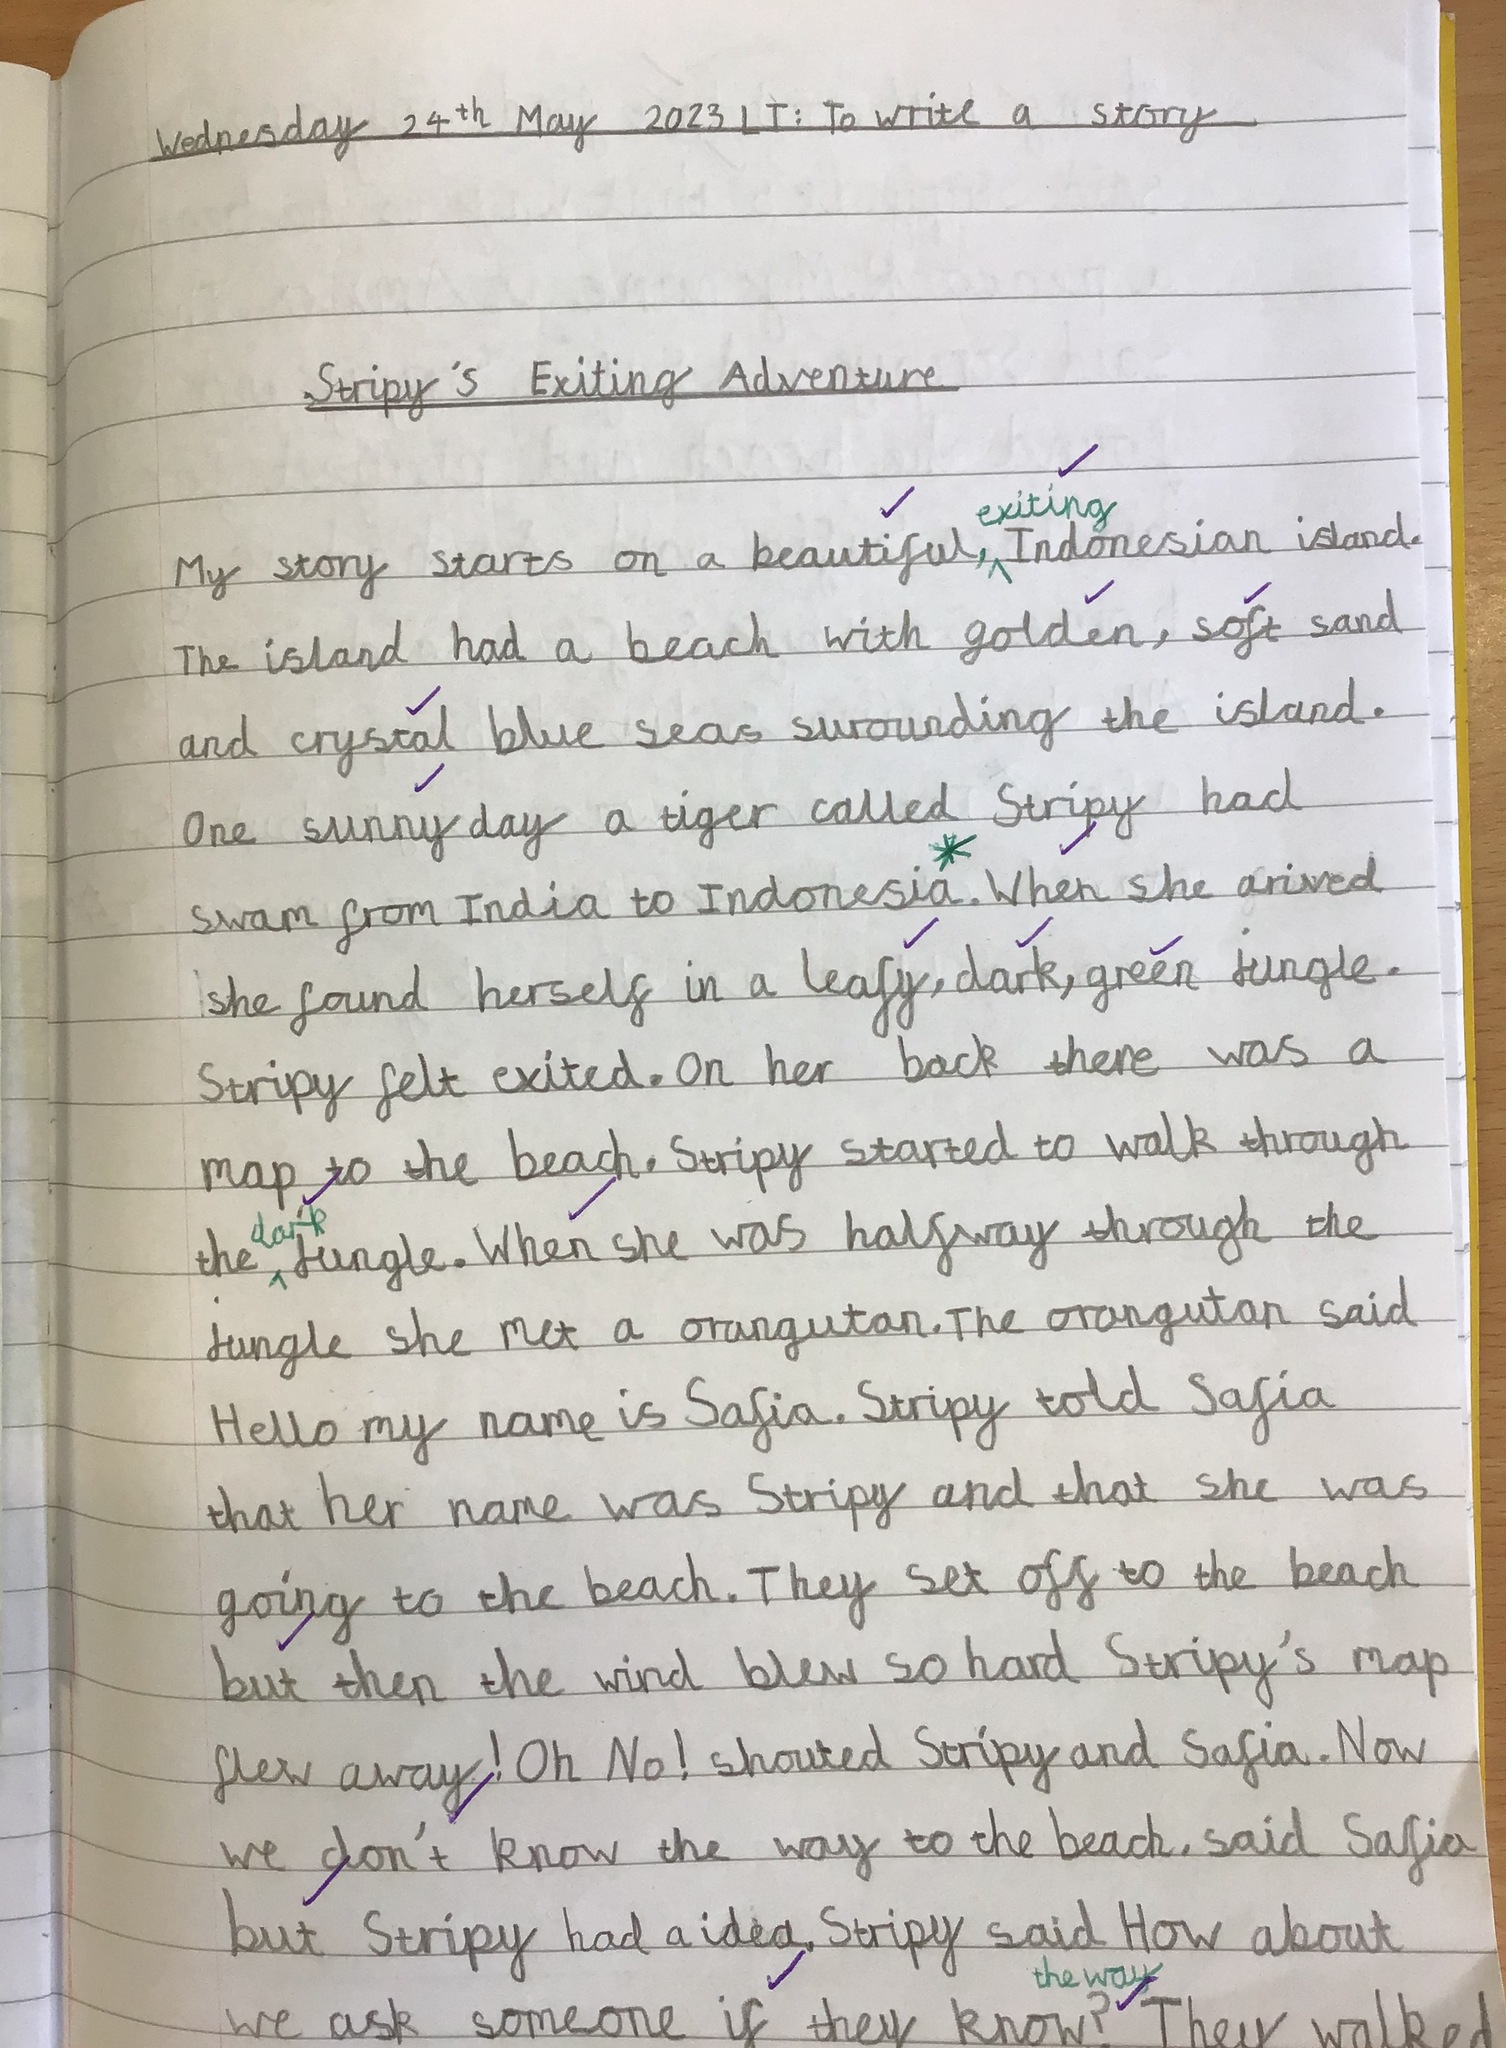 Wednesday 24th May 2023 LT: To write a story
Stripy's Exiting Adventure
exiting
My story starts on a beautiful, Indonesian island.
The island had a beach with golden, soft sand
and crystal blue seas surounding the island.
One sunny day a tiger called Stripy had
swam from India to Indonesia.* When she arived
she found herself in a leafy, dark, green jungle.
Stripy felt exited. On her back there was a
map to the beach. Stripy started to walk through
dark
the jungle. When she was halfway through the
jungle she met a orangutan. The orangutan said
Hello my name is Safia. Stripy told Safia
that her name was Stripy and that she was
going to the beach. They set off to the beach
but then the wind blew so hard Stripy's map
flew away! Oh No! shouted Stripy and Safia. Now
we don't know the way to the beach. said Safia
but Stripy had a idea. Stripy said How about
the way
we ask someone if they know? They walked